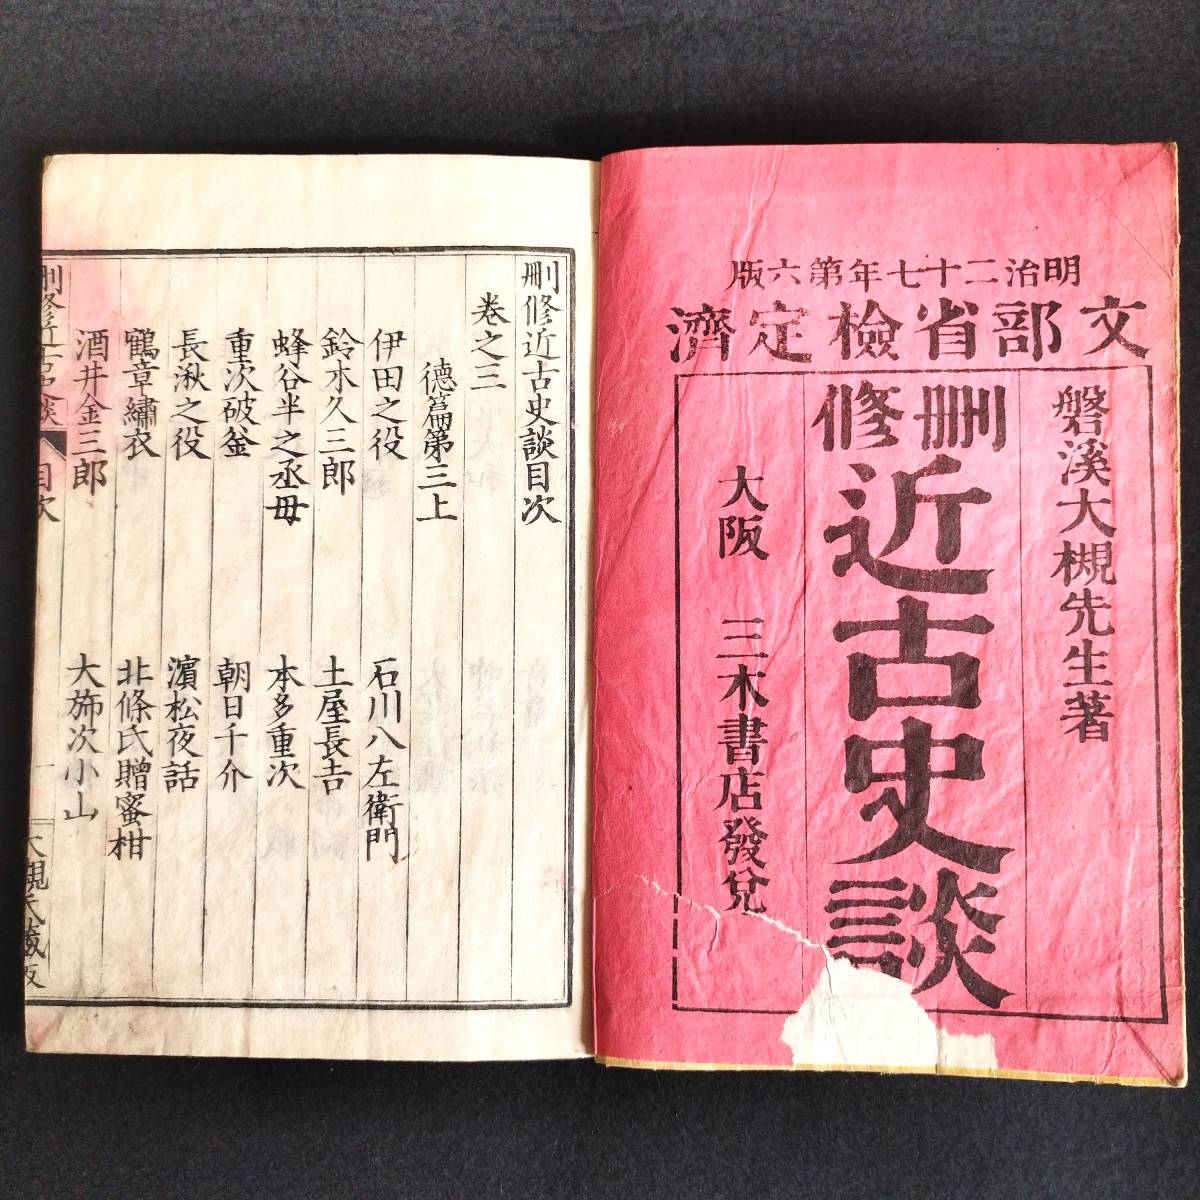 明治二十七年第六版
文部省檢定濟
磐溪大槻先生著
刪修
近古史談
大阪 三木書店發兌
刪修近古史談目次
卷之三
德篇第三上
伊田之役 石川八左衛門
鈴木久三郎 土屋長吉
蜂谷半之丞母 本多重次
重次破釜 朝日千介
長湫之役 濱松夜話
鶴章繡衣 北條氏贈蜜柑
酒井金三郎 大旆次小山
刪修近古史談 目次 一 大槻氏藏版